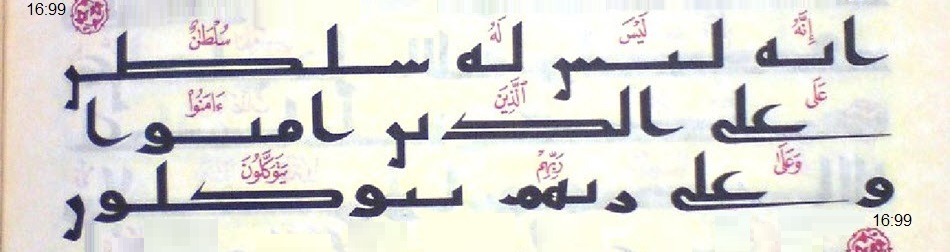 16:99
إِنَّهُ لَيْسَ لَهُ سُلْطَٰنٌ
انه لىس له سلطں
عَلَى ٱلَّذِينَ ءَامَنُوا۟
على الدىں امنوا
وَعَلَىٰ رَبِّهِمْ يَتَوَكَّلُونَ
و على ربهم ىىوكلوں
16:99